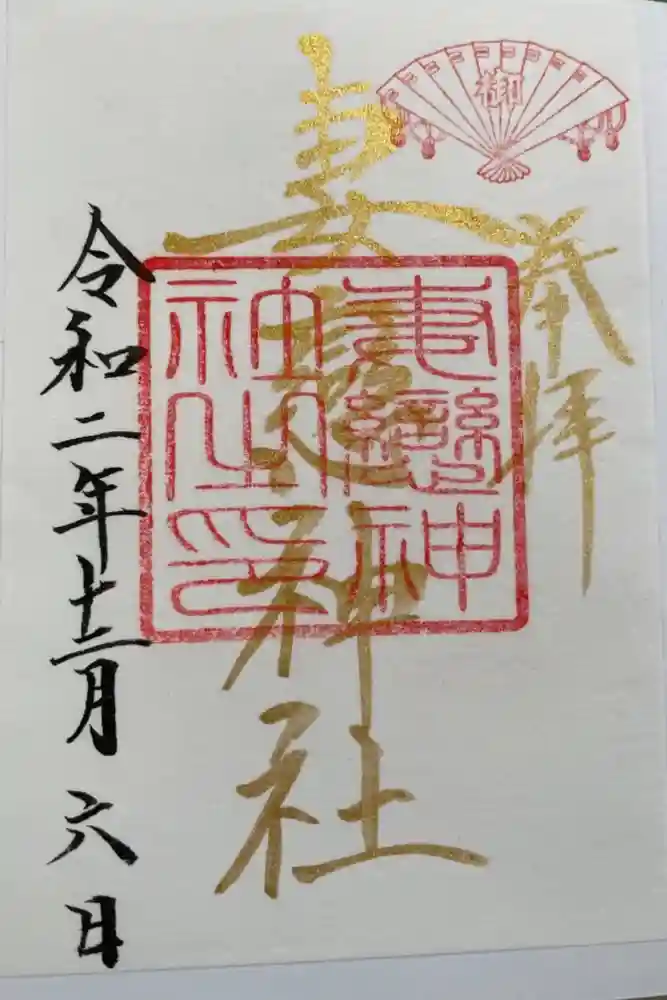 奉拝
妻戀神社
妻戀神
社之印
令和二年十二月六日